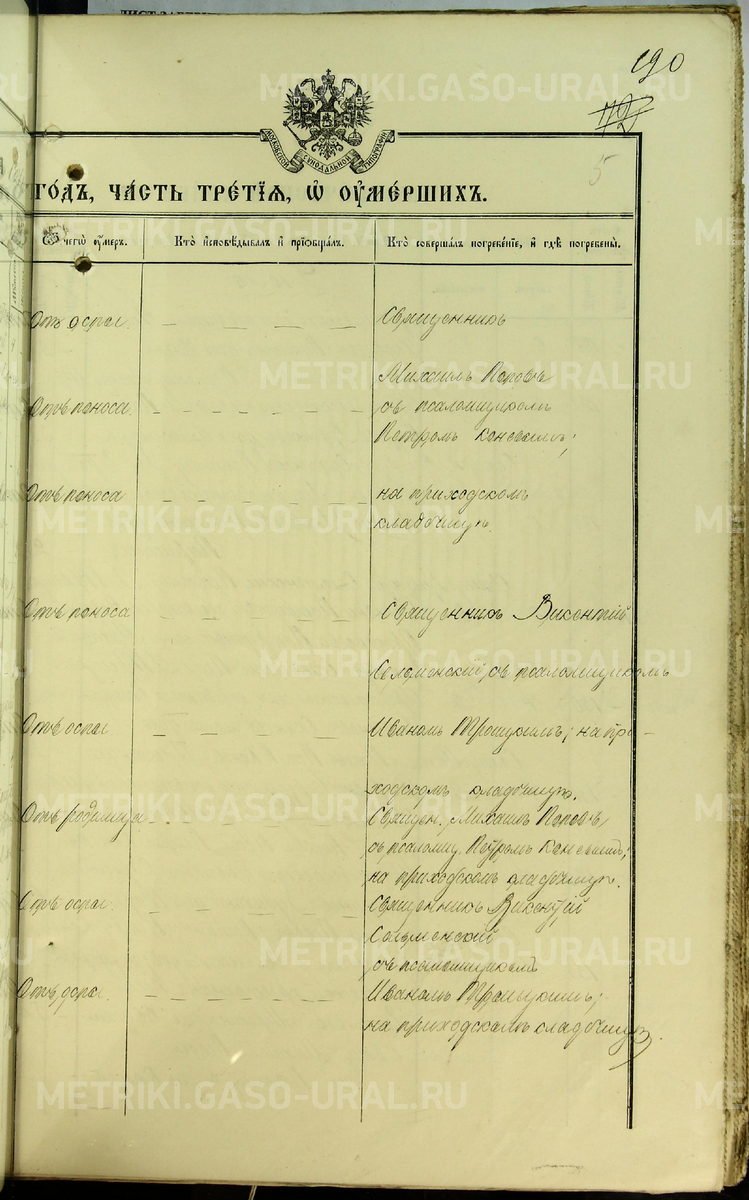 190
172
5
МОСКОВСКОЙ СѴНОДАЛЬНОЙ ТИПОГРАФІИ
ГОДЪ, ЧАСТЬ ТРЕТІЯ, Ѡ ОУМЕРШИХЪ.
Ѿ чегѡ оумеръ.
Кто исповѣдывалъ и пріобщалъ.
Кто совершалъ погребеніе, и гдѣ погребены.
Отъ оспы.
Священникъ
Михаилъ Поповъ
Отъ поноса
съ псаломщикомъ
Петромъ
Отъ поноса
на приходскомъ
кладбищѣ.
Отъ поноса
Священникъ Викентій
съ псаломщикомъ
Отъ оспы
Иваномъ Трошинымъ; на при-
ходскомъ кладбищѣ.
Отъ родимца
Священ. Михаилъ Поповъ
съ псаломщ. Петромъ
на приходскомъ кладбищѣ.
Отъ оспы
Священникъ Викентій
съ псаломщикомъ
Отъ оспы.
Иваномъ
на приходскомъ кладбищѣ.
METRIKI.GASO-URAL.RU